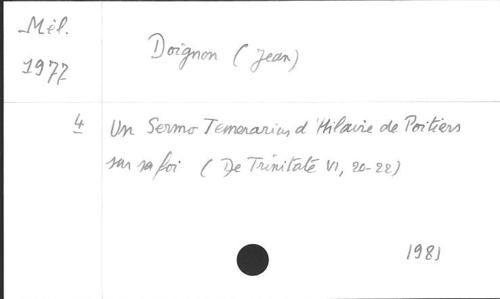 Mél.
1977
Doignon (Jean)
4 Un Sermo Temerarius d'Hilaire de Poitiers
sur sa foi (De Trinitate VI, 20-22)
1981